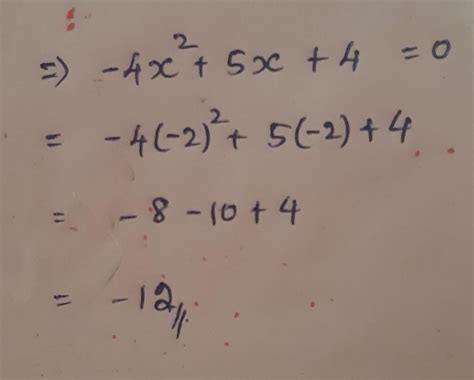 ⇒ -4x² + 5x + 4 = 0
= -4(-2)² + 5(-2) + 4
= -8 -10 + 4
= -12//